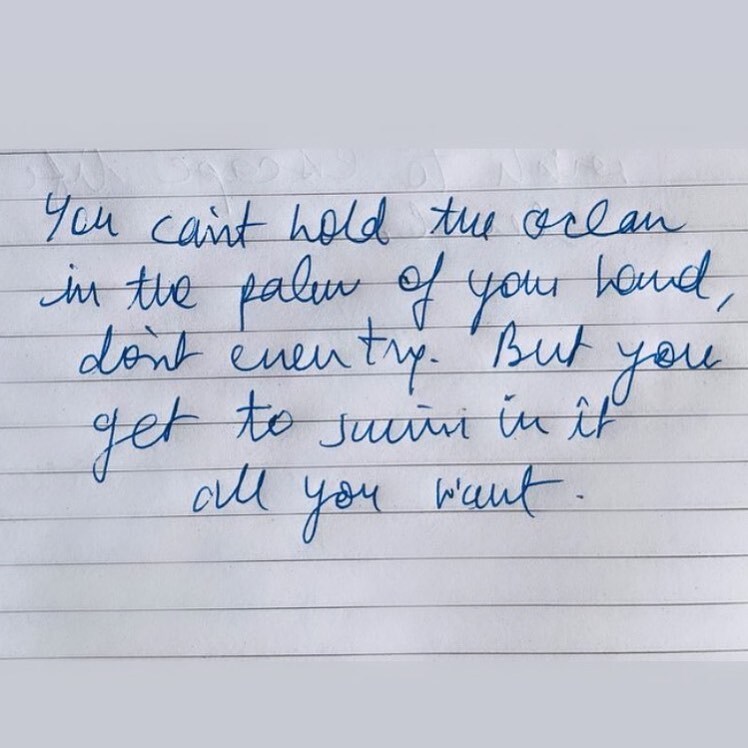 You can't hold the ocean
in the palm of your hand,
don't even try. But you
get to swim in it
all you want.